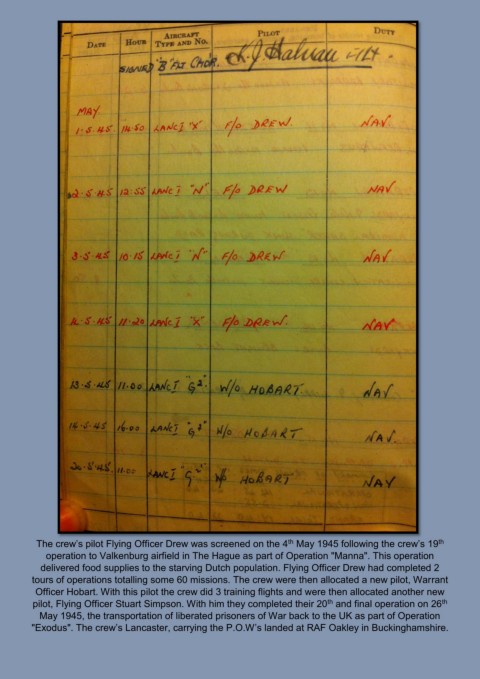 DATE HOUR AIRCRAFT TYPE AND No. PILOT DUTY
SIGNED "B" FLT CMDR.
MAY
1.5.45 14.50 LANC I "X" F/O DREW. NAV.
2.5.45 12.55 LANC I "N" F/O DREW NAV
3.5.45 10.15 LANC I "N" F/O DREW NAV.
4.5.45 11.20 LANC I "X" F/O DREW. NAV.
13.5.45 11.00 LANC I "G²". W/O HOBART. NAV
16.00 LANC I "G²" W/O HOBART NAV.
20.5.45. 11.00 LANC I "G²" W/O HOBART NAV
The crew's pilot Flying Officer Drew was screened on the 4th May 1945 following the crew's 19th
operation to Valkenburg airfield in The Hague as part of Operation "Manna". This operation
delivered food supplies to the starving Dutch population. Flying Officer Drew had completed 2
tours of operations totalling some 60 missions. The crew were then allocated a new pilot, Warrant
Officer Hobart. With this pilot the crew did 3 training flights and were then allocated another new
pilot, Flying Officer Stuart Simpson. With him they completed their 20th and final operation on 26th
May 1945, the transportation of liberated prisoners of War back to the UK as part of Operation
"Exodus". The crew's Lancaster, carrying the P.O.W's landed at RAF Oakley in Buckinghamshire.